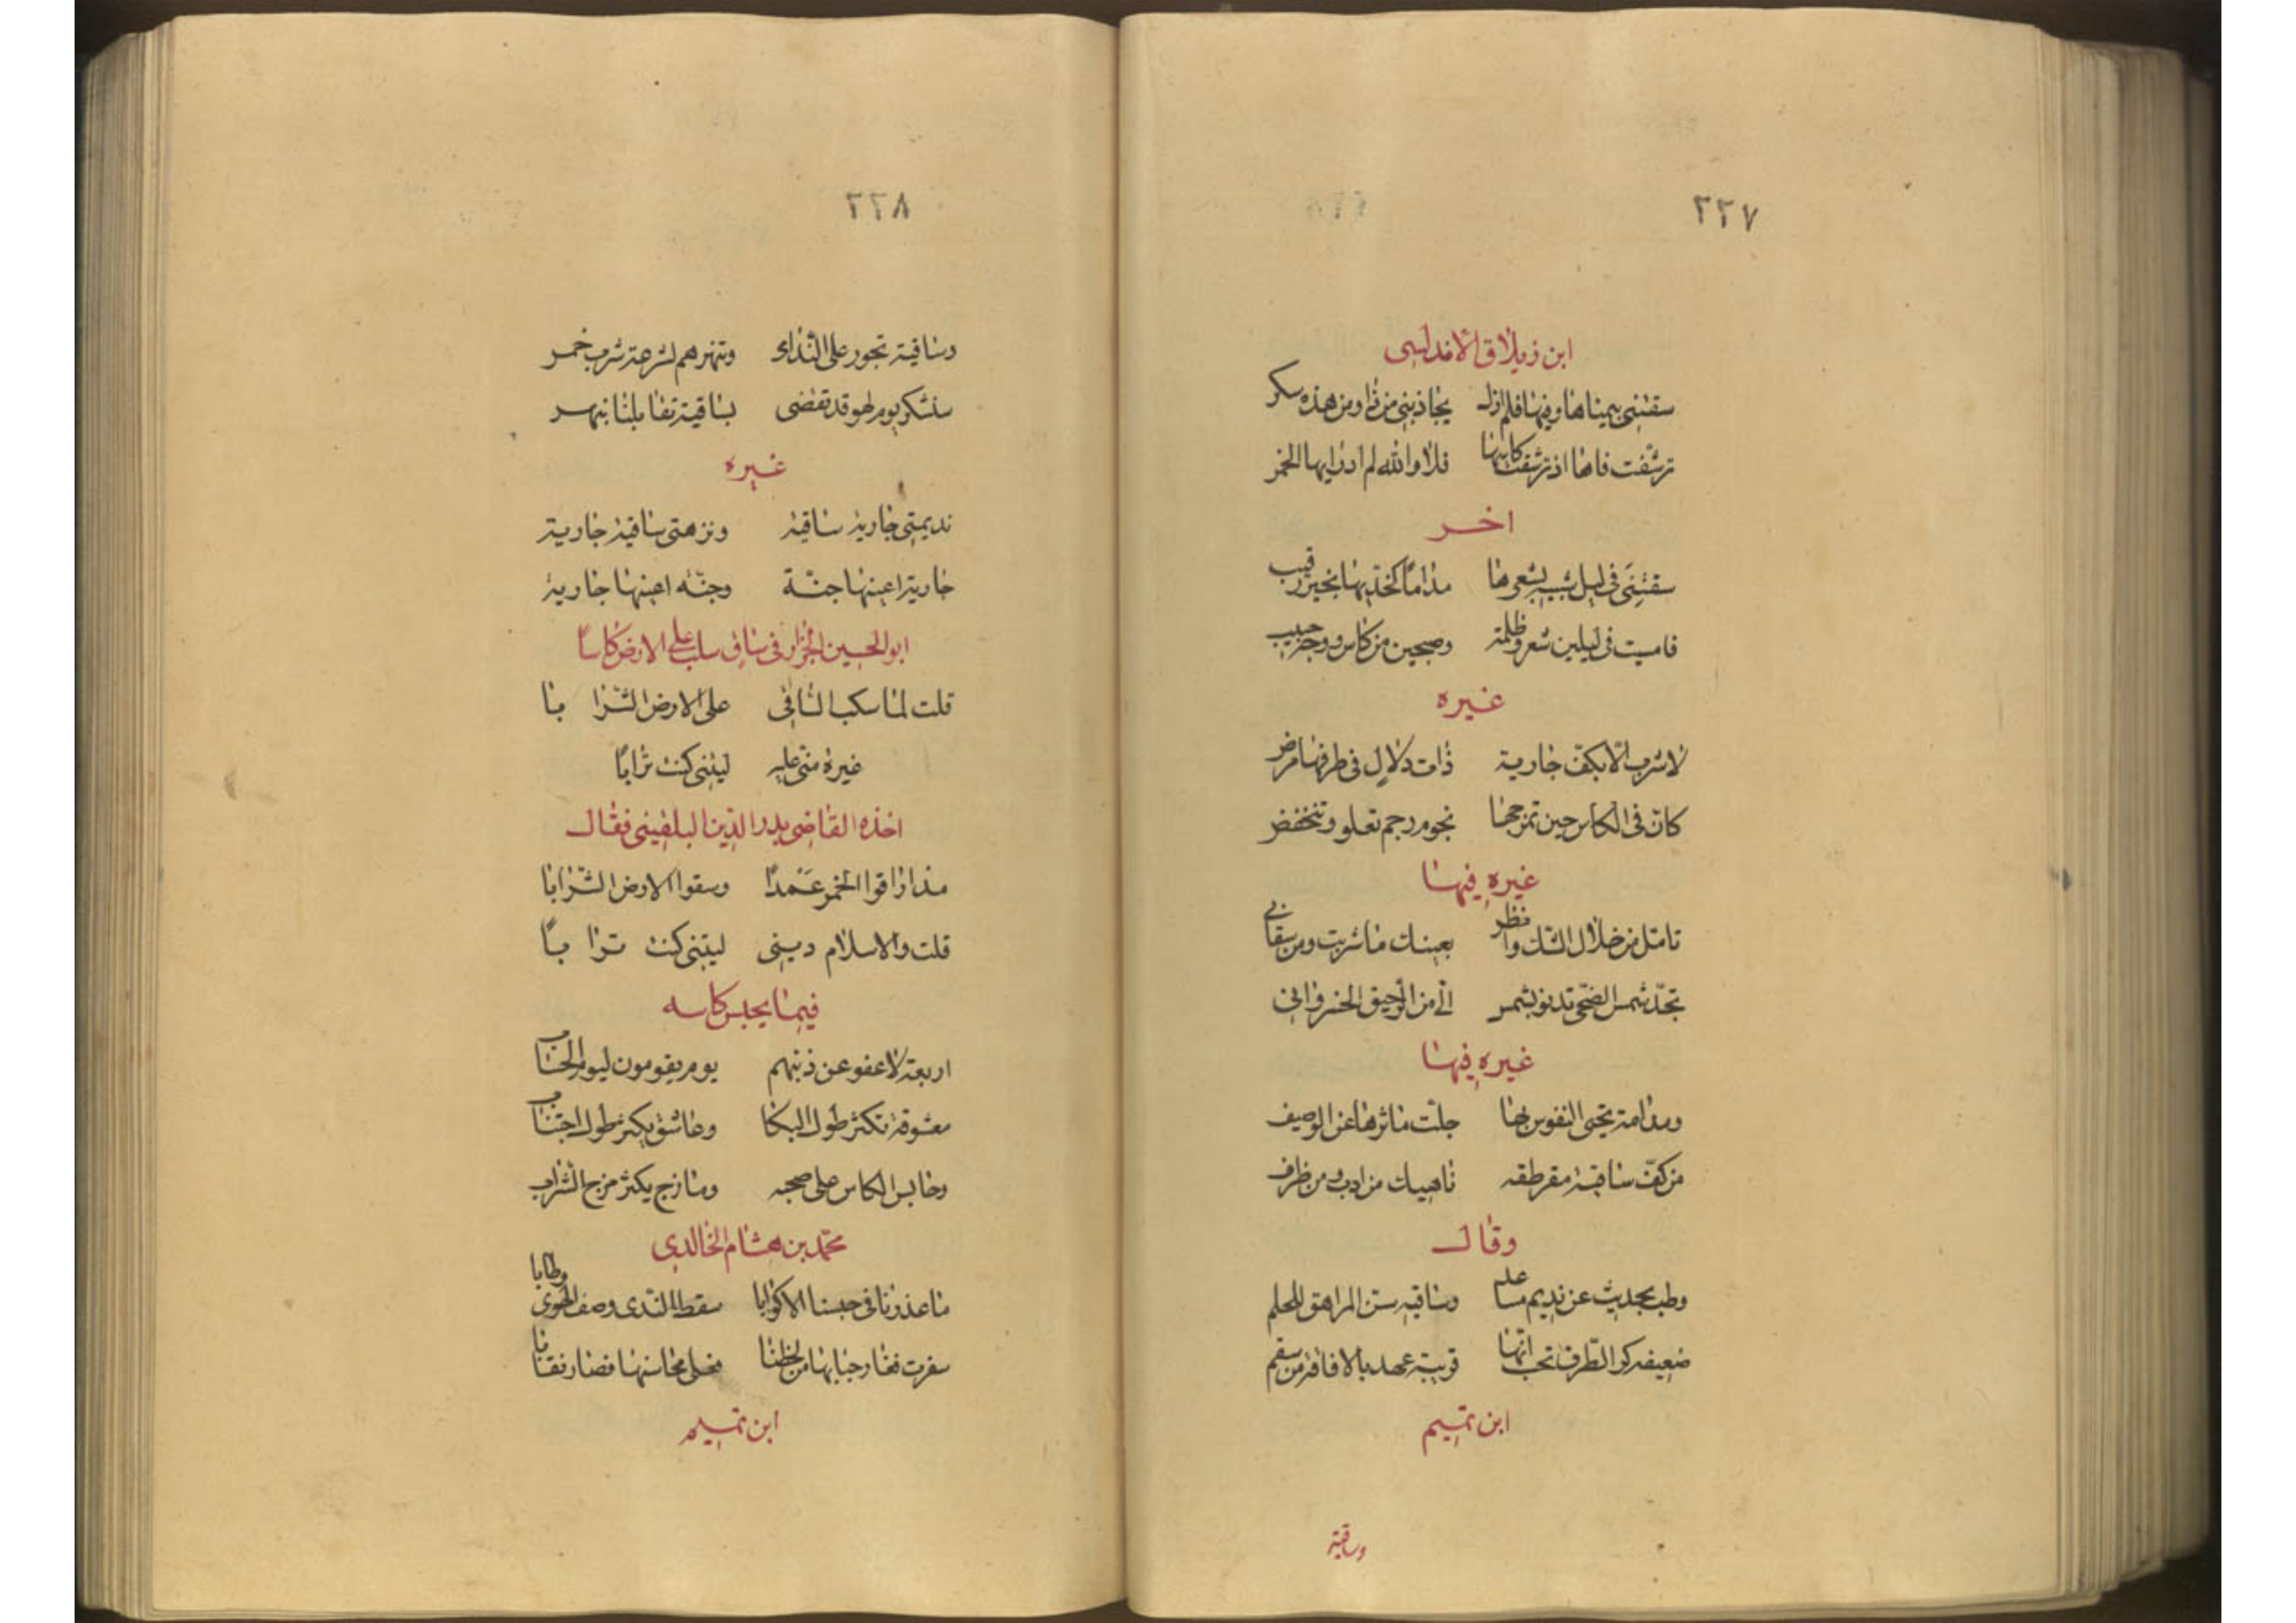 ٢٢٧
ابن زيلاق الاندلسي
سقتني بيمناها وفيها فلم ازل يجاذبني من ذا ومن هذه سكر
ترشفت فاها اذ ترشفت كاسها فلا والله لم ادر ايها الخمر
اخر
سقتني في ليل شبيه بشعرها مداما كخديها بغير رقيب
فامسيت في ليلين شعر وظلمة وصبحين من كاس ووجه حبيب
غيره
لا شرب الا بكف جارية ذات دلال في طرفها مرض
كان في الكاس حين تمزجها نجوم رجم تعلو وتنخفض
غيره فيها
تامل من خلال الشك وانظر بعينك ما شربت ومن سقاني
تجد شمس الضحى تدنو بشمس الي من الرحيق الخسرواني
غيره فيها
ومدامة يحيى النفوس بها جلت ماثرها عن الوصف
من كف ساقية مقرطقه ناهيك من ادب ومن ظرف
وقال
وطب بحديث عن نديم مساعد وساقيه سن المراهق للحلم
ضعيفه كر الطرف تحسب انها قريبة عهد بالافاقة من سقم
ابن تميم
وساقية
٢٢٨
وساقية تجور على الندامى وتنهرهم لسرعة شرب خمر
سنشكر يوم لهو قد تقضى بساقية تقابلنا بنهر
غيره
نديمتي جارية ساقية ونزهتي ساقية جارية
جارية اعينها جنة وجنة اعينها جارية
ابو الحسين الجزار في ساق سكب على الارض كاسا
قلت لما سكب الساقي على الارض الشرابا
غيرة مني عليه ليتني كنت ترابا
اخذه القاضي بدر الدين البلقيني فقال
مذ اراقوا الخمر عمدا وسقوا الارض الشرابا
قلت والاسلام ديني ليتني كنت ترابا
فيما يحبس كاسه
اربعة لا عفو عن ذنبهم يوم يقومون ليوم الحساب
معشوقة تكثر طول البكا وعاشق يكثر طول اجتناب
وحابس الكاس على صحبه ومازج يكثر مزج الشراب
محمد بن هشام الخالدي
ما عذرنا في حبسنا الاكوابا سقط الندى وصف الهوى وطابا
سفرت فغار حبابها من لحظنا فعلى محاسنها فصار نقابا
ابن تميم